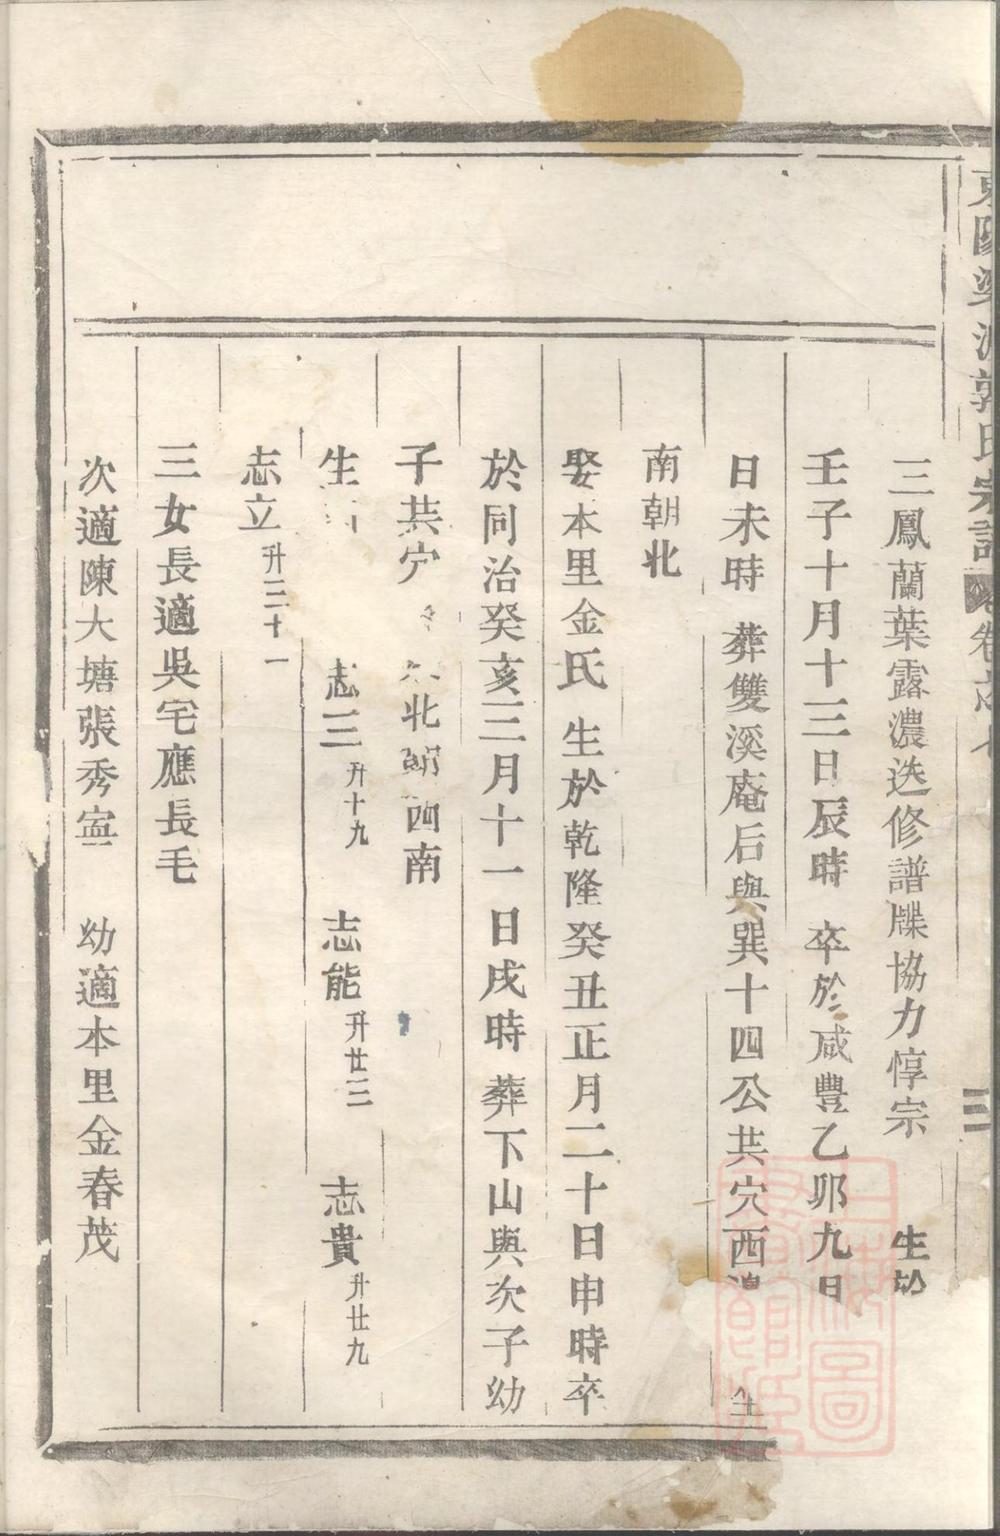 三鳳蘭葉露濃迭修譜牒協力惇宗 生
壬子十月十三日辰時 卒於咸豐乙卯九月
日未時 葬雙溪庵后與巽十四公共穴西
南朝北
娶本里金氏 生於乾隆癸丑正月二十日申時卒
於同治癸亥三月十一日戌時 葬下山與次子幼
子共穴 北朝西南
生 志三升十九 志能升廿三 志貴升廿九
志立升三十一
三女長適吳宅應長毛
次適陳大塘張秀寍 幼適本里金春茂
郭氏宗譜 卷 三